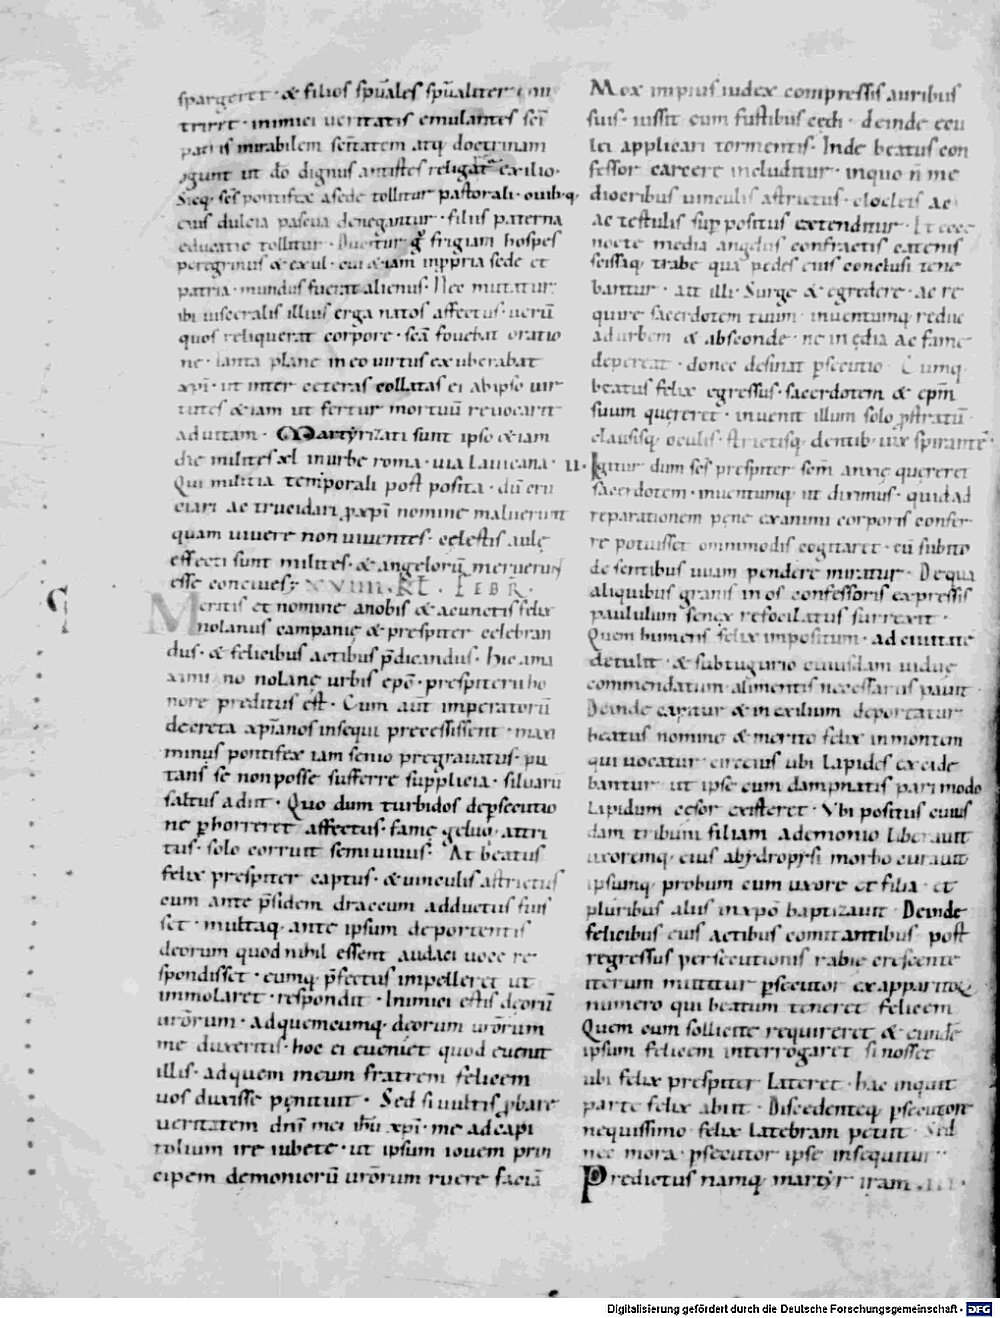 spargeret · & filios spũales spũaliter
triret · inimici ueritatis emulantes scĩ
patris mirabilem scĩtatem atq; doctrinam
agunt ut dõ dignus antistes religat̃ exilio·
Sicq; scs̃ pontifex a sede tollitur pastorali · ouibq;
eius dulcia pascua denegantur · filiis paterna
educatio tollitur · Ducitur g̃ frigiam hospes
peregrinus & exul · cui & iam in ppria sede et
patria · mundus fuerat alienus · Nec mutatur
ibi uisceralis illius erga natos affectus · uerũ
quos reliquerat corpore · scã fouebat oratio
ne · Tanta plane in eo uirtus exuberabat
xpĩ · ut inter ceteras collatas ei ab ipso uir
tutes & iam ut fertur mortuũ reuocarit
ad uitam · Martyrizati sunt ipso & iam
die milites xl in urbe roma · uia Lauicana ·
Qui militia temporali post posita · dũ cru
ciari ac trucidari p xpĩ nomine maluerunt
quam uiuere non uiuentes · cęlestis aulę
effecti sunt milites · & angelorũ meruerunt
esse conciues; XVIIII · KL̃ · FEBR̃ ·
Meritis et nomine a nobis & a cunctis felix
nolanus campanię & prespiter celebran
dus · & felicibus actibus p̃dicandus · hic a ma
ximi no nolanę urbis epõ · prespiterii ho
nore preditus est · Cum aut imperatorũ
decreta xp̃ianos insequi precessissent · maxi
minus pontifex iam senio pregrauatus · pu
tans se non posse sufferre supplicia · siluarũ
saltus adiit · Quo dum turbidos depsecutio
ne phorreret affectus · famę geluq; attri
tus · solo corruit semiuiuus · At beatus
felix prespiter captus · & uinculis astrictus
cum ante p̃sidem draccum adductus fuis
set · multaq; ante ipsum de portentis
deorum quod nihil essent audaci uoce re
spondisset · cumq; p̃fectus impelleret ut
immolaret · respondit · Inimici estis deorũ
urõrum · ad quemcumq; deorum urõrum
me duxeritis · hoc ei eueniet quod euenit
illis · ad quem meum fratrem felicem
uos duxisse pęnituit · Sed si uultis pbare
ueritatem dnĩ mei ihũ xpĩ · me ad capi
tolium ire iubete · ut ipsum iouem prin
cipem demoniorũ urõrum ruere faciã
Mox impius iudex compressis auribus
suis · iussit eum fustibus cędi · deinde ecu
lei applicari tormentis · Inde beatus con
fessor carcere includitur · in quo ñ me
diocribus uinculis astrictus · clocleis ac
ac testulis sup positus extenditur · Et ecce
nocte media angelus confractis catenis
scissaq; trabe qua pedes eius conclusi tene
bantur · ait illi · Surge & egredere · ac re
quire sacerdotem tuum · inuentumq; reduc
ad urbem & absconde · ne in ędia ac fame
depereat · donec desinat psecutio · Cumq;
beatus felix egressus · sacerdotem & epm̃
suum quęreret · inuenit illum solo pstratũ ·
clausisq; oculis · strictisq; dentib; uix spirante ·
II · Igitur dum scs̃ prespiter scm̃ anxię quęreret
sacerdotem · inuentumq; ut diximus · quid ad
reparationem pęne exanimi corporis confer
re potuisset omnimodis cogitaret · cũ subito
de sentibus uuam pendere miratur · De qua
aliquibus granis in os confessoris expressis
paululum senex refocilatus surrexit ·
Quem humeris felix impositum · ad ciuitatẽ
detulit · & sub tugurio cuiusdam uiduę
commendatum alimentis necessariis pauit ·
Deinde capitur & in exilium deportatur
beatus nomine & merito felix in montem
qui uocatur circeius ubi Lapides excide
bantur · ut ipse cum dampnatis pari modo
Lapidum cesor existeret · Vbi positus cuius
dam tribuni filiam a demonio liberauit
uxoremq; eius ab ydropysi morbo curauit
ipsumq; probum cum uxore et filia · et
pluribus aliis in xpõ baptizauit · Deinde
felicibus eius actibus comitantibus post
regressus persecutionis rabie crescente
iterum mittitur psecutor ex apparitorũ
numero qui beatum teneret felicem
Quem cum sollicite requireret & eundẽ
ipsum felicem interrogaret si nosset
ubi felix prespiter Lateret · hac inquit
parte felix abiit · Discedenteq; psecutore
nequissimo felix Latebram petiit · Sed
nec mora · psecutor ipse insequitur ·
Predictus namq; martyr iram · III ·
Digitalisierung gefördert durch die Deutsche Forschungsgemeinschaft - DFG